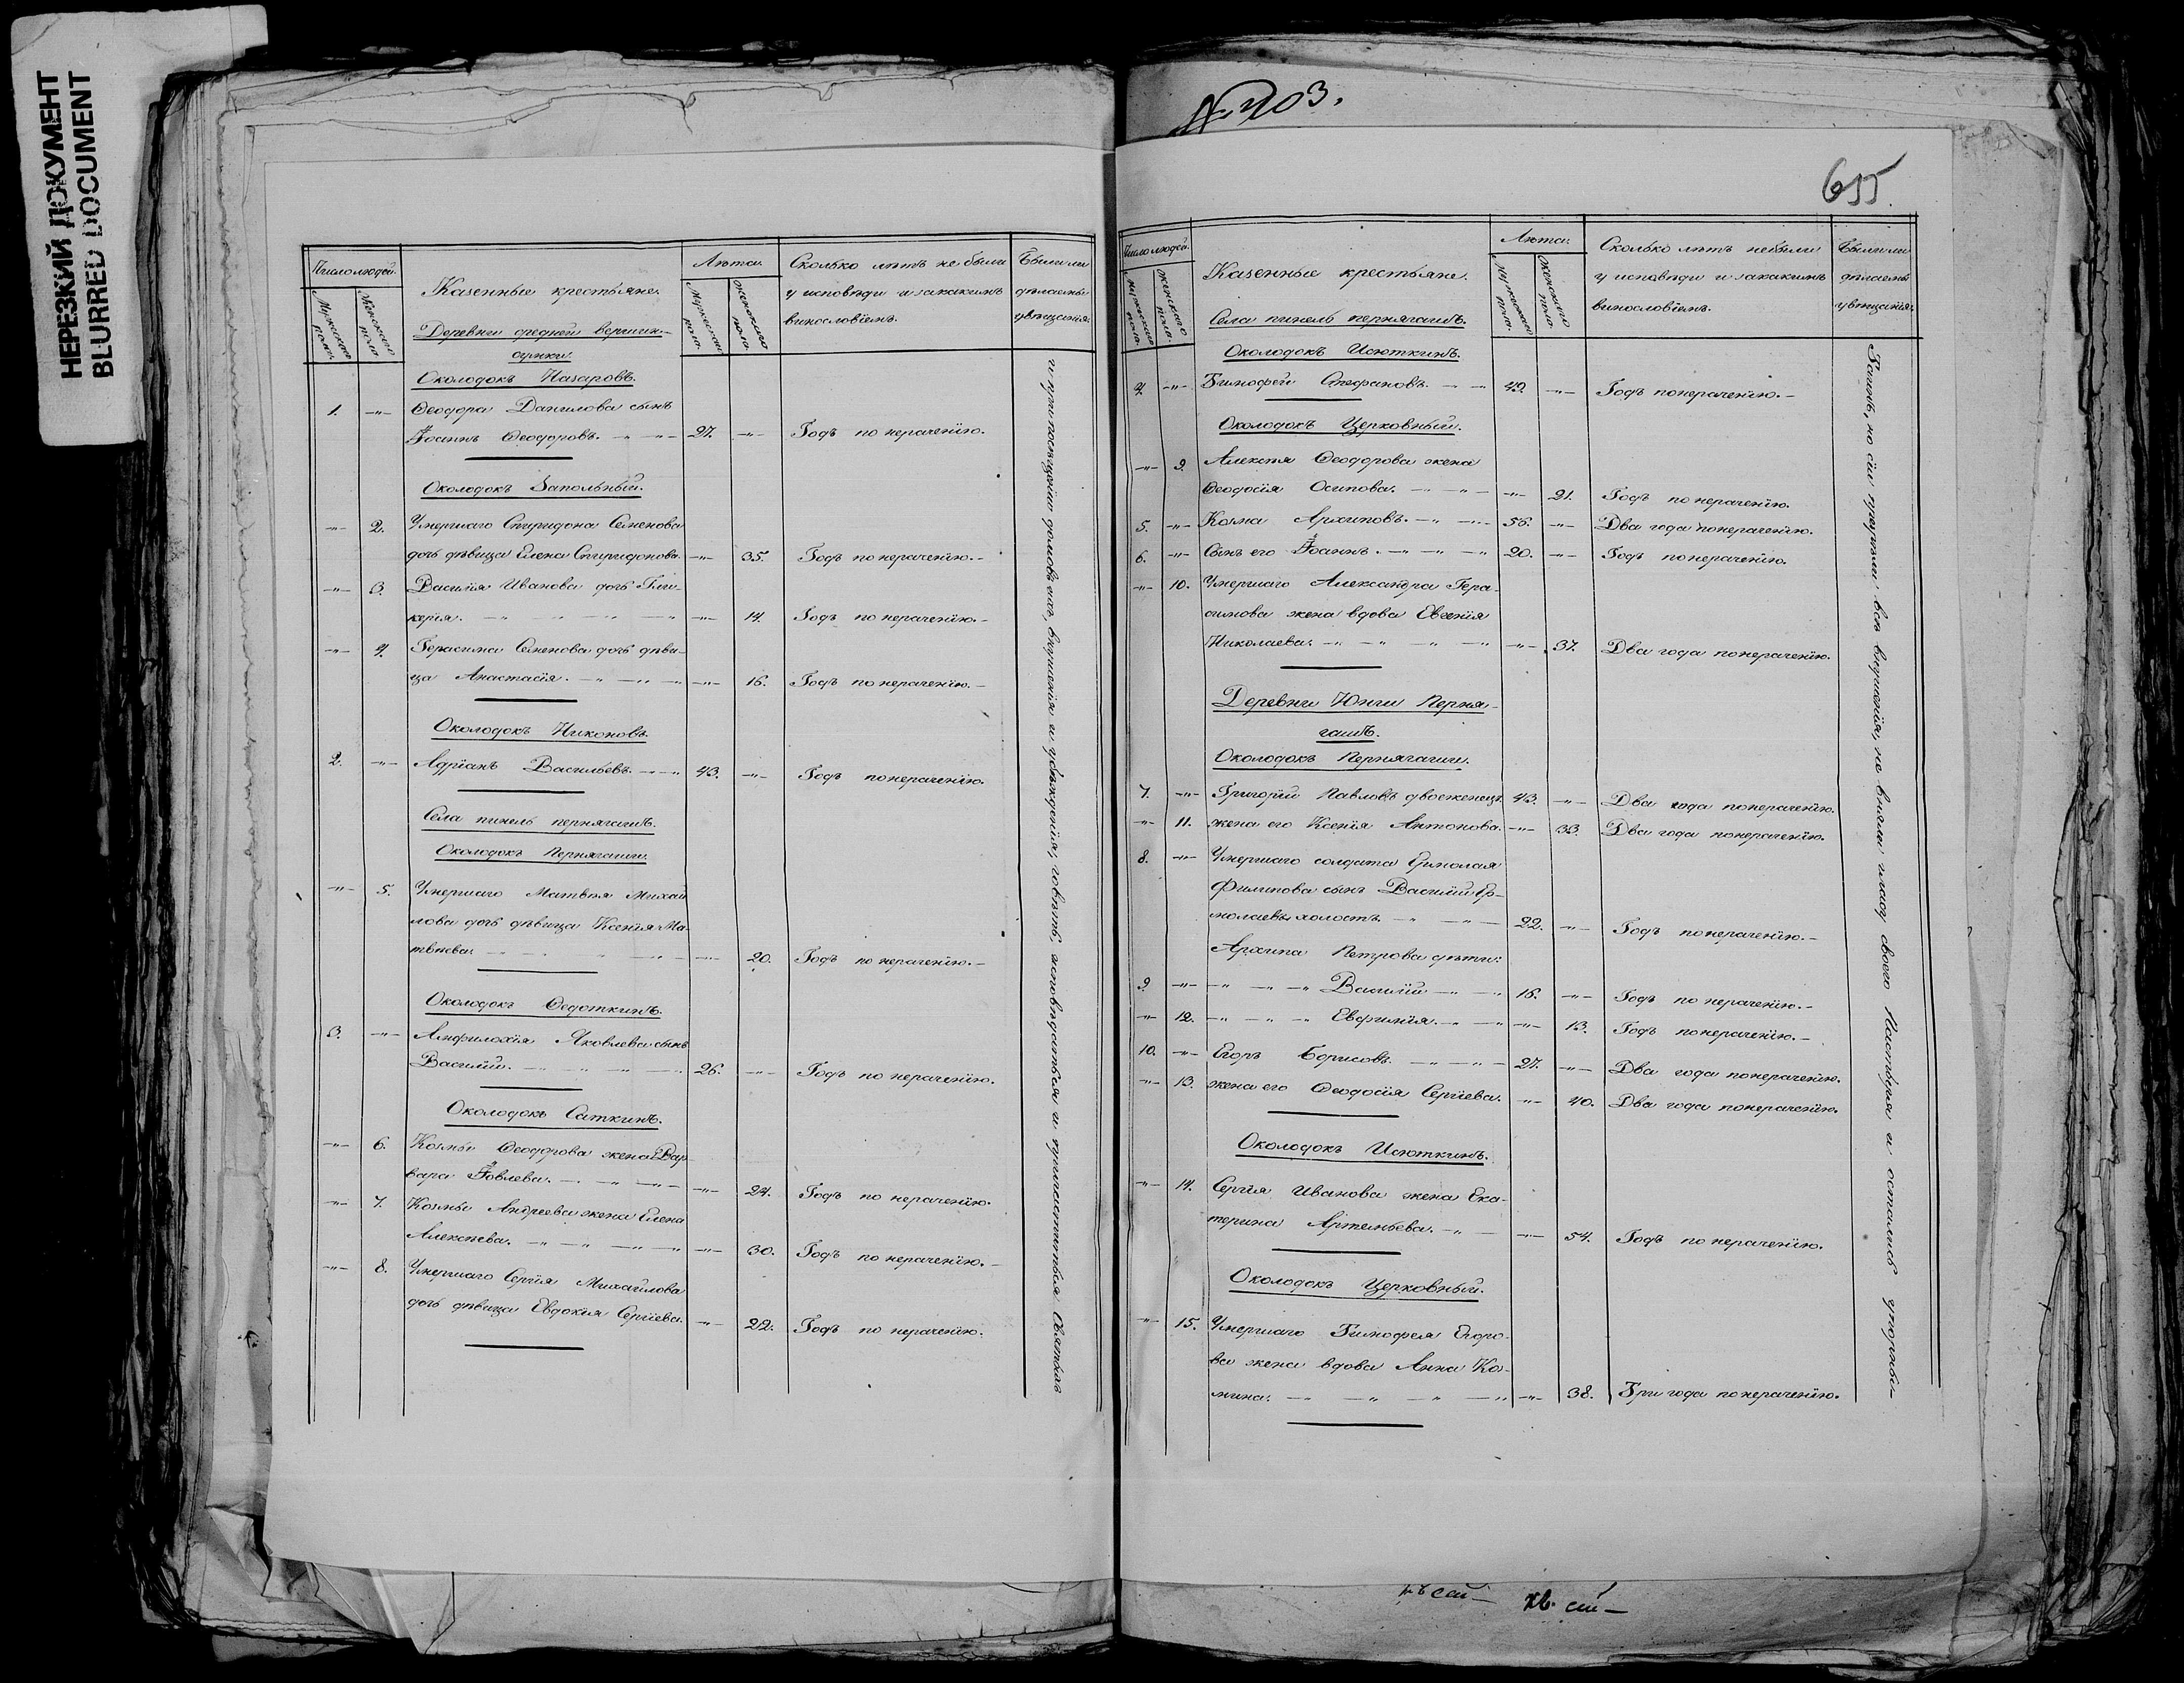 НЕРЕЗКИЙ ДОКУМЕНТ
BLURRED DOCUMENT
Число людей.
Мужескаго пола.
Женскаго пола
Казенные крестьяне.
Деревни средней вершин-
сумки.
Лѣта.
Мужескаго пола.
Женскаго пола.
Сколько лѣтъ не были
у исповѣди и закакимъ
винословіемъ.
Были ли
дѣлаемы
увѣщанія.
Околодокъ Назаровъ.
1. —„— Ѳеодора Данилова сынъ
Іоаннъ Ѳеодоровъ. — „ — 27. —„— Годъ по нераченію.
Околодокъ Запольный.
—„— 2. Умершаго Спиридона Семенова
дочь дѣвица Елена Спиридонова. —„— 35. Годъ по нераченію.—
—„— 3. Василія Иванова дочь Гли-
керія. — „ — „ — „ —„— 14. Годъ по нераченію.—
—„— 4. Герасима Семенова дочь дѣви-
ца Анастасія. — „ — „ — —„— 16. Годъ по нераченію.—
Околодокъ Никоновъ.
2. —„— Адріанъ Васильевъ. — „ — 43. —„— Годъ по нераченію.
Села пинель пернягашъ.
Околодокъ Пернягаши.
—„— 5. Умершаго Матвѣя Михай
лова дочь дѣвица Ксенія Ма-
твѣева. — „ — „ — —„— 20. Годъ по нераченію.—
Околодокъ Ѳедоткинъ.
3. —„— Амфилохія Яковлева сынъ
Василій. — „ — „ — 26. —„— Годъ по нераченію.
Околодокъ Саткинъ.
—„— 6. Козмы Ѳеодорова жена Вар
вара Іовлева. — „ — „ — —„— 24. Годъ по нераченію.
—„— 7. Козмы Андреева жена Елена
Алексѣева. — „ — „ — „ —„— 30. Годъ по нераченію.—
—„— 8. Умершаго Сергія Михайлова
дочь дѣвица Евдокія Сергіева. —„— 22. Годъ по нераченію.
и при посѣщеніи домовъ ихъ, внушенія и убѣжденія, говѣть, исповѣдаться и причаститься Святыхъ
№ 703.
655.
Число людей.
Мужескаго пола.
Женскаго пола.
Казенные крестьяне.
Села пинель пернягашъ.
Лѣта.
Мужескаго пола.
Женскаго пола.
Сколько лѣтъ небыли
у исповѣди и закакимъ
винословіемъ.
Были ли
дѣлаемы
увѣщанія.
Околодокъ Исюткинъ.
4. —„— Тимофей Стефановъ. — „ 49. —„— Годъ по нераченію.—
Околодокъ Церковный.
—„— 9. Алексѣя Ѳеодорова жена
Ѳеодосія Осипова. — „ — —„— 21. Годъ по нераченію.
5. —„— Козма Архиповъ. — „ — 56. —„— Два года по нераченію.
6. —„— Сынъ его Іоаннъ. — „ — „ 20. —„— Годъ по нераченію.
—„— 10. Умершаго Александра Гера-
симова жена вдова Евгенія
Николаева. — „ — „ — „ —„— 37. Два года по нераченію.
Деревни Юнги Перня-
гашъ.
Околодокъ Пернягаши.
7. —„— Григорій Павловъ двоеженецъ 43. —„— Два года по нераченію.
—„— 11. жена его Ксенія Антонова. —„— 33. Два года по нераченію.
8. —„— Умершаго солдата Ермолая
Филипова сынъ Василій Ер-
молаевъ холостъ. — „ — 22. —„— Годъ по нераченію.—
Архипа Петрова дѣти:
9. —„— — „ — „ Василій — „ 16. —„— Годъ по нераченію.—
—„— 12. — „ — „ Евфимія. — „ —„— 13. Годъ по нераченію.—
10. —„— Егоръ Борисовъ. — „ — 27. —„— Два года по нераченію.
—„— 13. жена его Ѳеодосія Сергіева. —„— 40. Два года по нераченію.
Околодокъ Исюткинъ.
—„— 14. Сергія Иванова жена Ека-
терина Артемьева. — „ — —„— 54. Годъ по нераченію.
Околодокъ Церковный.
—„— 15. Умершаго Тимофея Егоро-
ва жена вдова Анна Ко-
мина. — „ — „ — „ —„— 38. Три года по нераченію.
Таинъ, но сіи презрѣли всѣ внушенія, не вняли гласу своего Пастыря и остались упорны—